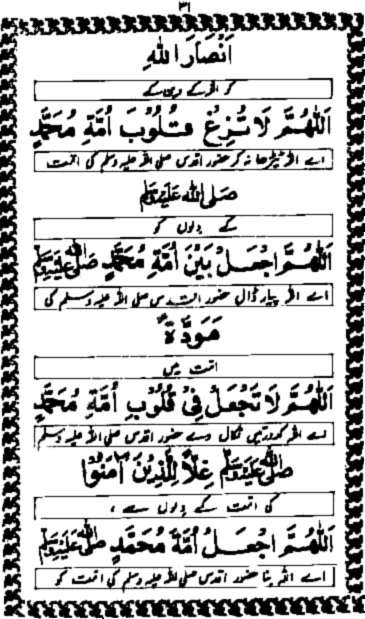 ۳۱
اَنْصَارَ اللهِ
کر اللہ کے دین کے
اَللّٰهُمَّ لَا تُزِغْ قُلُوْبَ اُمَّةِ مُحَمَّدٍ
اے اللہ ٹیڑھا نہ کر حضور اقدس صلی اللہ علیہ وسلم کی امت
صَلَّى اللهُ عَلَيْهِ وَسَلَّمَ
کے دلوں کو
اَللّٰهُمَّ اجْعَلْ بَيْنَ اُمَّةِ مُحَمَّدٍ صَلَّى اللهُ عَلَيْهِ وَسَلَّمَ
اے اللہ پیار ڈال حضور اقدس صلی اللہ علیہ وسلم کی
مَوَدَّةً
امت میں
اَللّٰهُمَّ لَا تَجْعَلْ فِىْ قُلُوْبِ اُمَّةِ مُحَمَّدٍ
اے اللہ کدورتیں نکال دے حضور اقدس صلی اللہ علیہ وسلم
صَلَّى اللهُ عَلَيْهِ وَسَلَّمَ غِلًّا لِّلَّذِيْنَ اٰمَنُوْا
کی امت کے دلوں سے ،
اَللّٰهُمَّ اجْعَلْ اُمَّةَ مُحَمَّدٍ صَلَّى اللهُ عَلَيْهِ وَسَلَّمَ
اے اللہ بنا حضور اقدس صلی اللہ علیہ وسلم کی امت کو